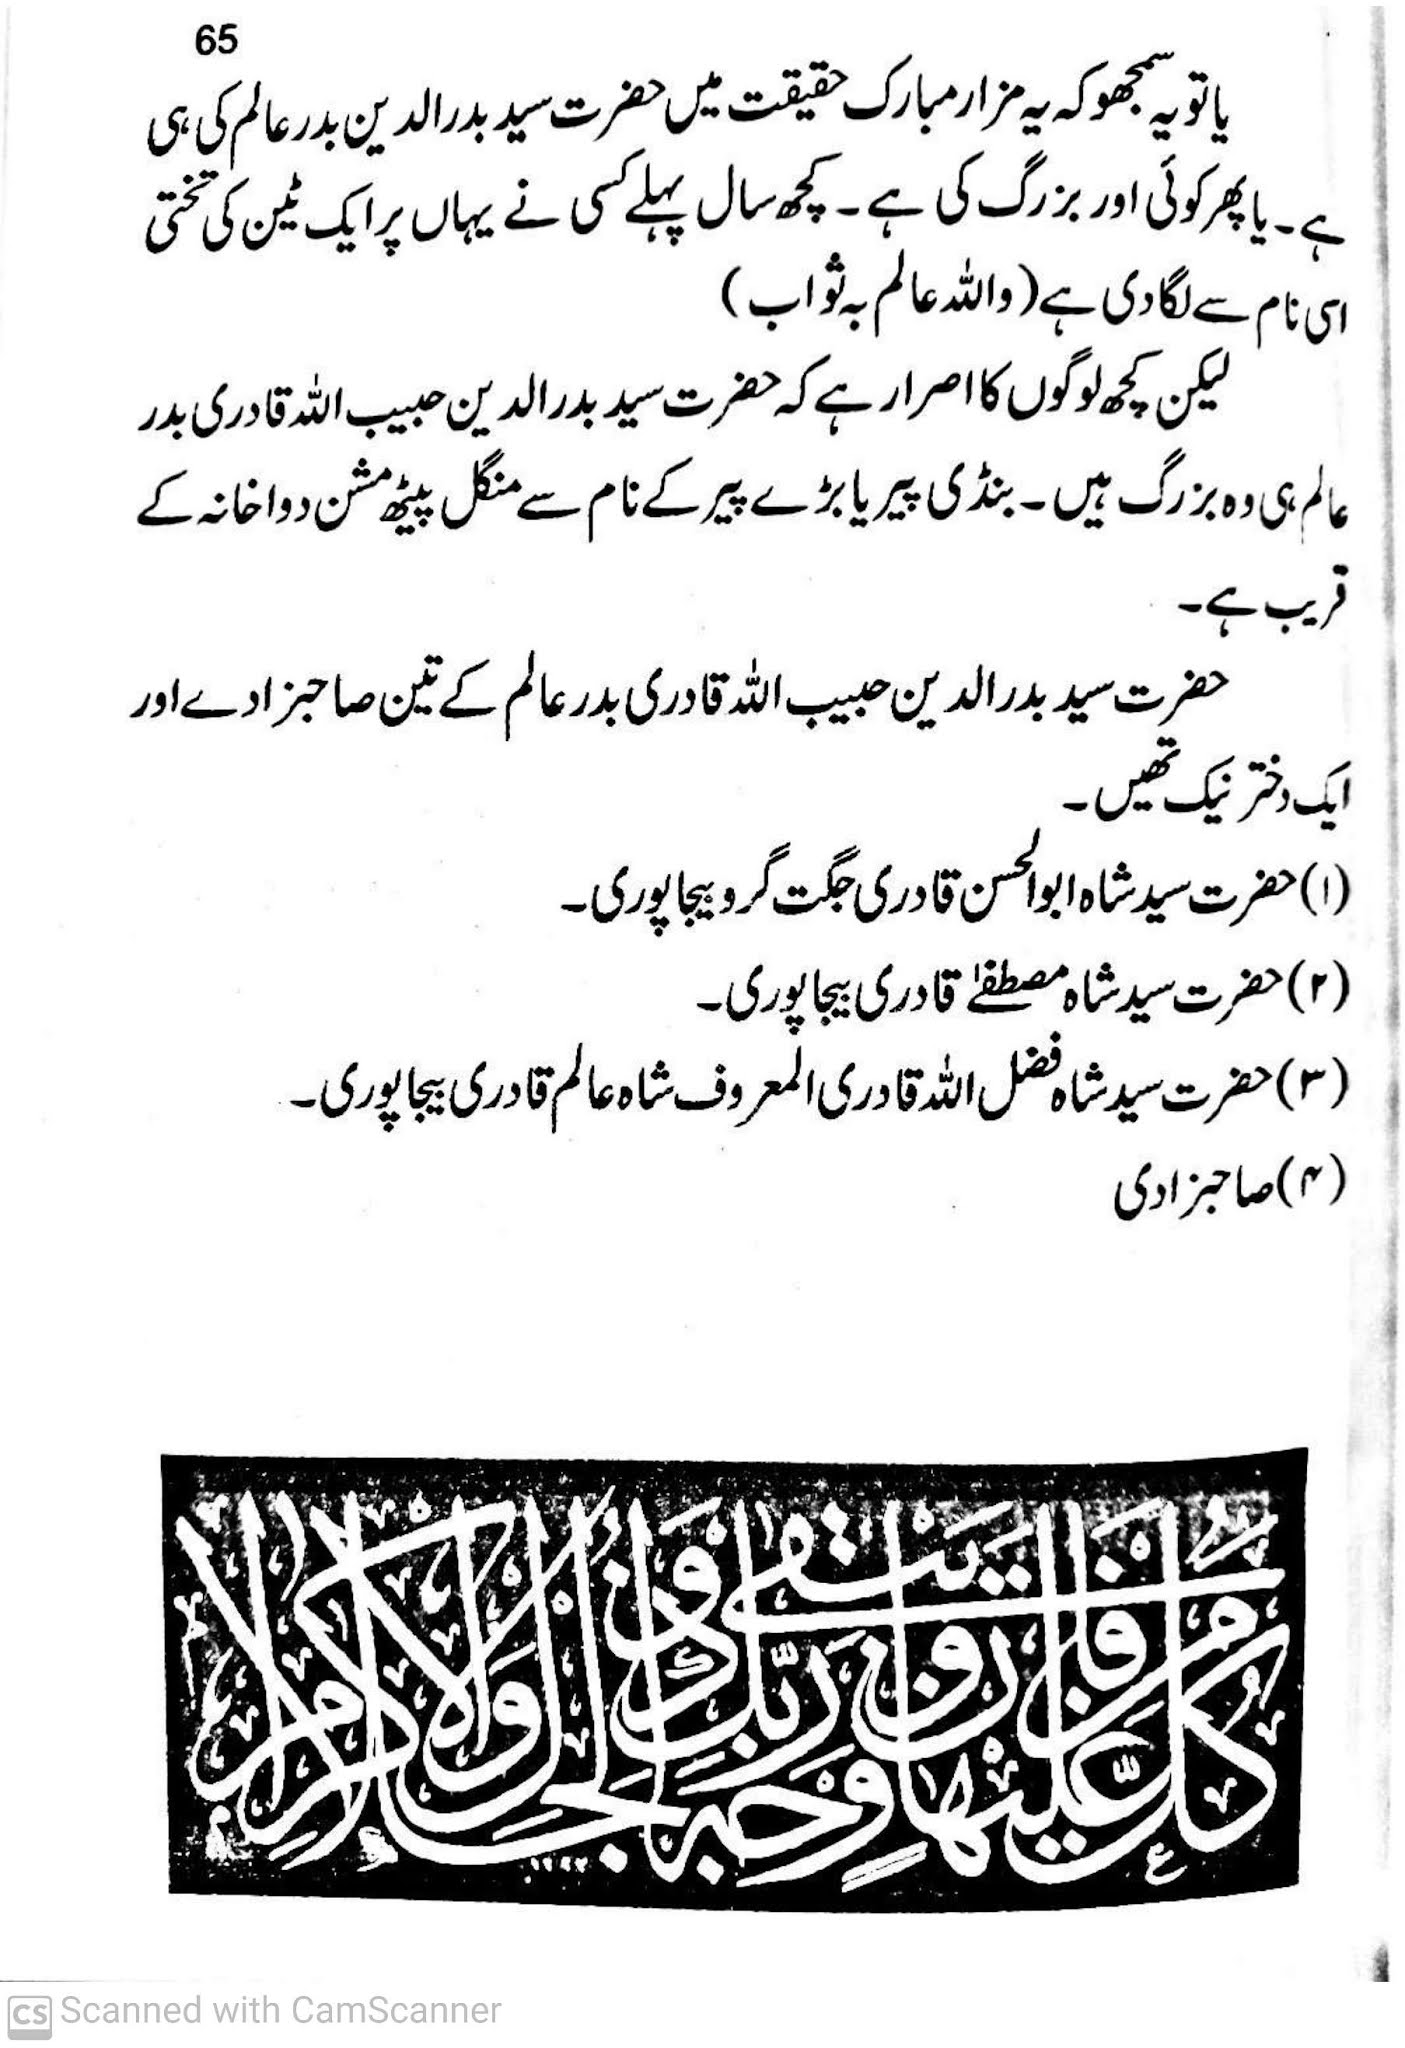 65
یا تو یہ سمجھو کہ یہ مزار مبارک حقیقت میں حضرت سید بدرالدین بدر عالم کی ہی
ہے۔ یا پھر کوئی اور بزرگ کی ہے۔ کچھ سال پہلے کسی نے یہاں پر ایک ٹین کی تختی
اسی نام سے لگا دی ہے (واللہ عالم بہ ثواب)
لیکن کچھ لوگوں کا اصرار ہے کہ حضرت سید بدرالدین حبیب اللہ قادری بدر
عالم ہی وہ بزرگ ہیں۔ بنڈی پیر یا بڑے پیر کے نام سے منگل پیٹھ مشن دواخانہ کے
قریب ہے۔
حضرت سید بدرالدین حبیب اللہ قادری بدر عالم کے تین صاحبزادے اور
ایک دختر نیک تھیں۔
(۱) حضرت سید شاہ ابوالحسن قادری جگت گرو بیجاپوری۔
(۲) حضرت سید شاہ مصطفےٰ قادری بیجاپوری۔
(۳) حضرت سید شاہ فضل اللہ قادری المعروف شاہ عالم قادری بیجاپوری۔
(۴) صاحبزادی
كُلُّ مَنْ عَلَيْهَا فَانٍ وَيَبْقَىٰ وَجْهُ رَبِّكَ ذُو الْجَلَالِ وَالْإِكْرَامِ
CS Scanned with CamScanner